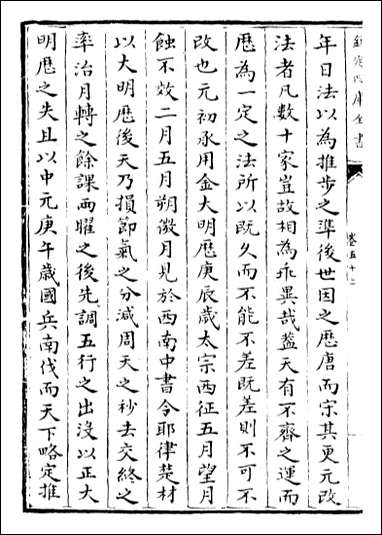 欽定四庫全書
卷五十二
年日法以為推步之準後世因之歷唐而宗其更元改
法者凡數十家豈故相為乖異哉蓋天有不齊之運而
厯為一定之法所以既久而不能不差既差則不可不
改也元初承用金大明厯庚辰歲太宗西征五月望月
蝕不效二月五月朔微月見於西南中書令耶律楚材
以大明厯後天乃損節氣之分減周天之秒去交終之
率治月轉之餘課兩曜之後先調五行之出沒以正大
明厯之失且以中元庚午歲國兵南伐而天下略定推